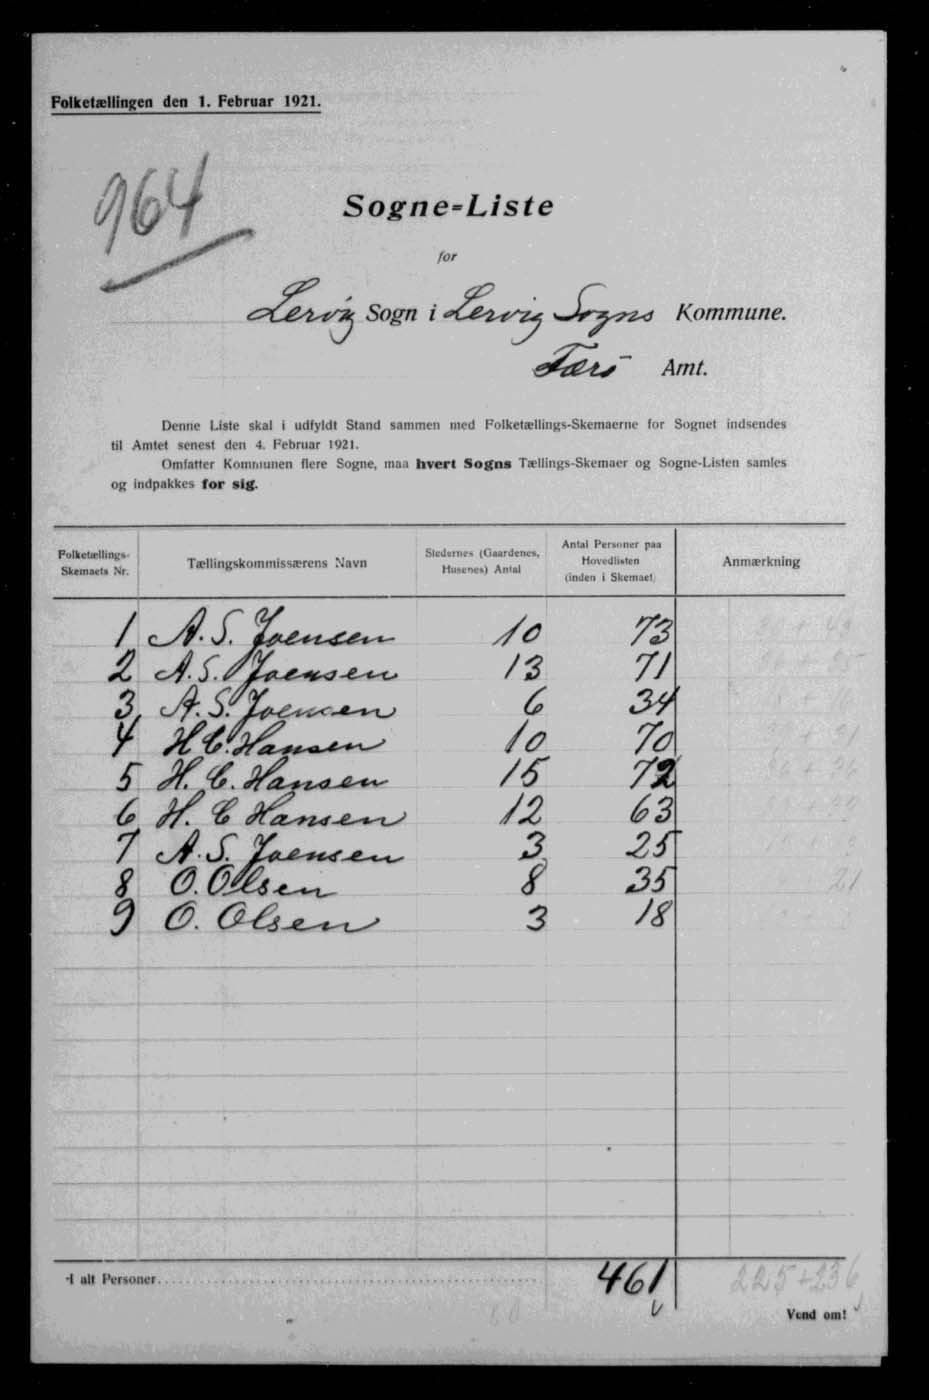 Folketællingen den 1. Februar 1921.
964
Sogne=Liste
for
Lervig Sogn i Lervig Sogns Kommune.
Færö Amt.
Denne Liste skal i udfyldt Stand sammen med Folketællings-Skemaerne for Sognet indsendes
til Amtet senest den 4. Februar 1921.
Omfatter Kommunen flere Sogne, maa hvert Sogns Tællings-Skemaer og Sogne-Listen samles
og indpakkes for sig.
Folketællings-Skemaets Nr. Tællingskommissærens Navn Stedernes (Gaardenes, Husenes) Antal Antal Personer paa Hovedlisten (inden i Skemaet) Anmærkning
1 A. S. Joensen 10 73
2 A. S. Joensen 13 71
3 A. S. Joensen 6 34
4 H C. Hansen 10 70
5 H. C. Hansen 15 72
6 H. C Hansen 12 63
7 A. S. Joensen 3 25
8 O. Olsen 8 35 21
9 O. Olsen 3 18
I alt Personer 461 225+236
80
Vend om!